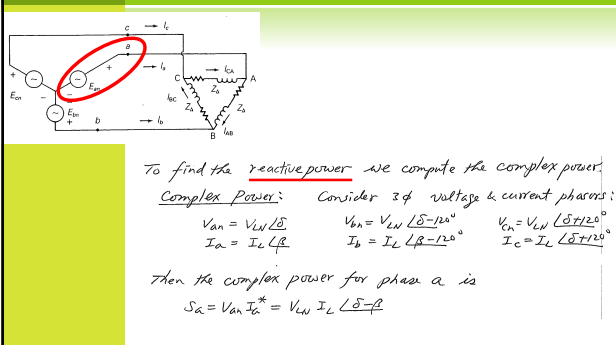 c → Ic
a
→ Ia
+ Ean -
+ Ecn -
Ebn +
b → Ib
C ICA A
ZΔ
IBC ZΔ ZΔ
IAB
B
To find the reactive power we compute the complex power.
Complex Power: Consider 3φ voltage & current phasors:
Van = VLN ∠δ Vbn = VLN ∠δ-120° Vcn = VLN ∠δ+120°
Ia = IL ∠β Ib = IL ∠β-120° Ic = IL ∠δ+120°
Then the complex power for phase a is
Sa = Van Ia* = VLN IL ∠δ-β